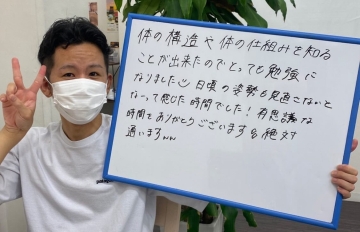 体の構造や体の仕組みを知る
ことが出来たのでとっても勉強に
なりました 日頃の姿勢も見直さないと
なーって感じた時間でした!有意義な
時間をありがとうございます 絶対
通います